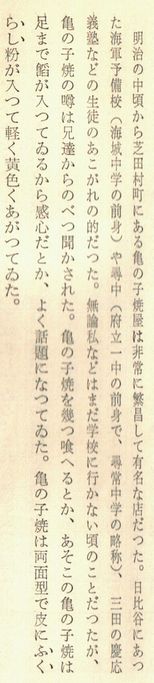 明治の中頃から芝田村町にある亀の子焼屋は非常に繁昌して有名な店だつた。日比谷にあつ
た海軍予備校（海城中学の前身）や尋中（府立一中の前身で、尋常中学の略称）、三田の慶応
義塾などの生徒のあこがれの的だつた。無論私などはまだ学校に行かない頃のことだつたが、
亀の子焼の噂は兄達からのべつ聞かされた。亀の子焼を幾つ喰へるとか、あそこの亀の子焼は
足まで餡が入つてゐるから感心だとか、よく話題になつてゐた。亀の子焼は両面型で皮にふく
らし粉が入つて軽く黄色くあがつてゐた。